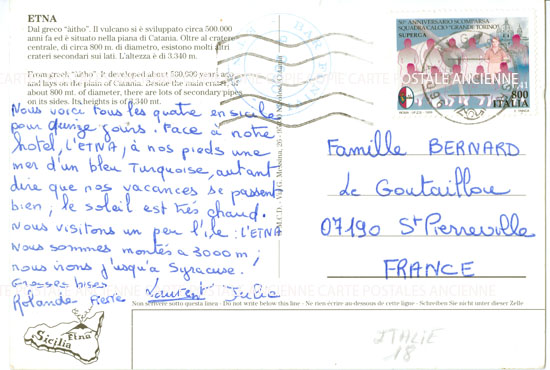 ETNA
Dal greco "àitho". Il vulcano si è sviluppato circa 500.000
anni fa ed è situato nella piana di Catania. Oltre al cratere
centrale, di circa 800 m. di diametro, esistono molti altri
crateri secondari sui lati. L'altezza è di 3.340 m.
From greek "àitho". It developed about 500,000 years ago
and lays on the plain of Catania. Beside the main crater,
about 800 mt. of diameter, there are lots of secondary pipes
on its sides. Its heights is of 3.340 mt.
Nous voici tous les quatre en sicile
pour quinze jours. Face à notre
hotel, l'ETNA, à nos pieds une
mer d'un bleu Turquoise, autant
dire que nos vacances se passent
bien, le soleil est très chaud.
Nous visitons un peu l'île : l'ETNA
Nous sommes montés à 3000 m ;
nous irons j'usqu'à Syracuse.
Grosses bises
Rolande Pierre Laurent Julie
Sicilia
Etna
50° ANNIVERSARIO SCOMPARSA
SQUADRA CALCIO "GRANDE TORINO"
SUPERGA
800
ITALIA
Famille BERNARD
Le Goutaillou
07190 St Pierreville
FRANCE
Non scrivere sotto questa linea - Do not write below this line - Ne rien écrire au-dessous de cette ligne - Schreiben Sie nicht unter dieser Zeile
ITALIE
18
CARTE POSTALE ANCIENNE